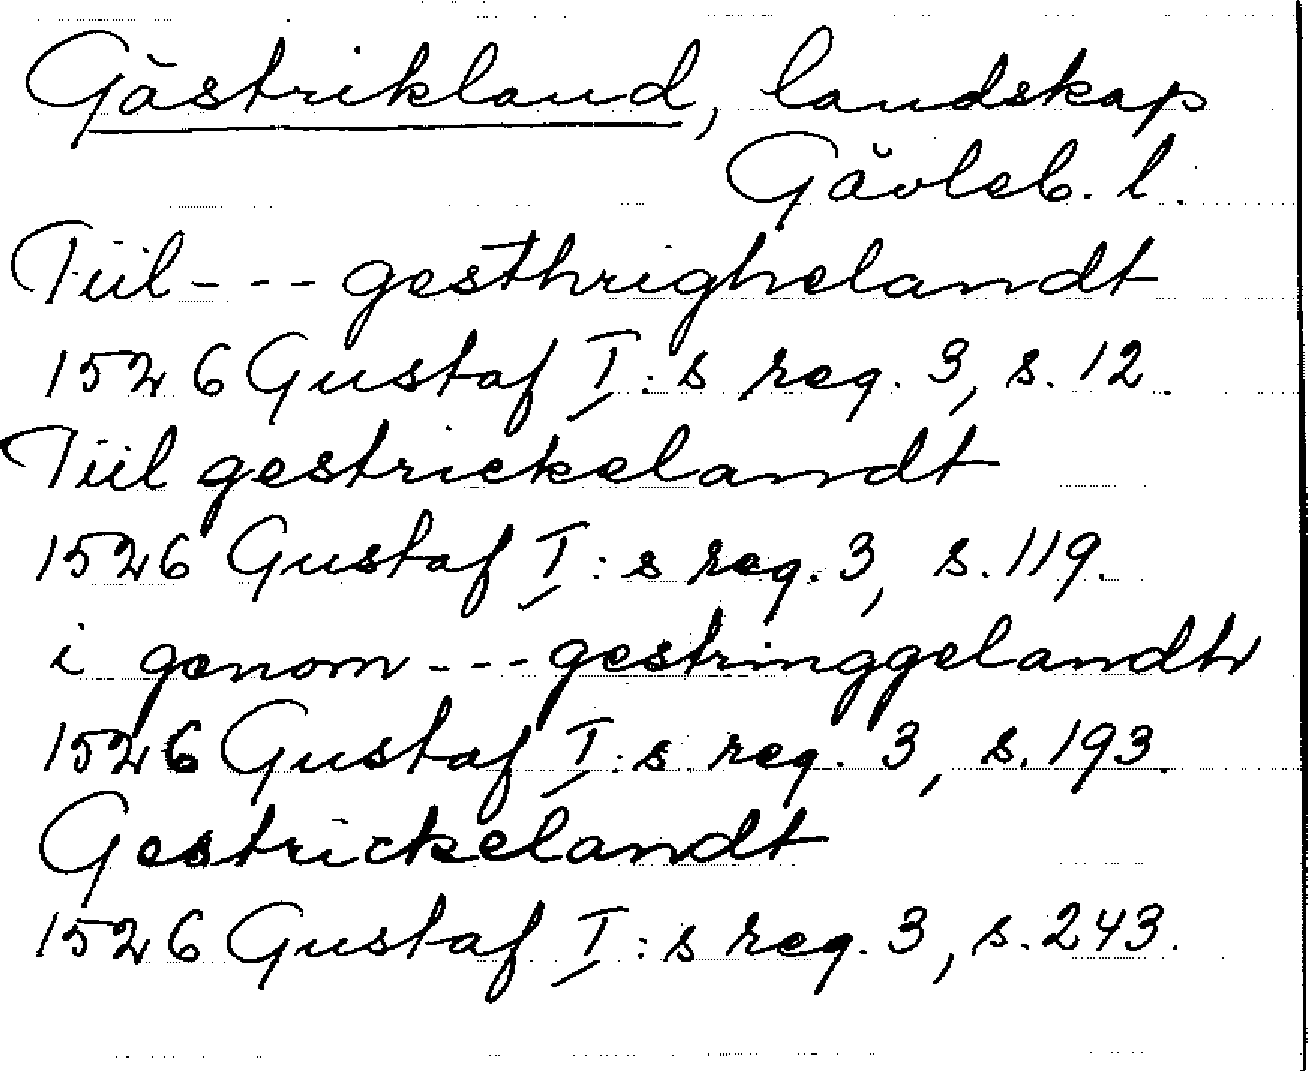 Gästrikland, landskap
Gävleb. l.
Tiil --- gesthrighelandt
1526 Gustaf I:s reg. 3, s. 12.
Tiil gestrickelandt
1526 Gustaf I:s reg. 3, s. 119.
i genom --- gestringgelandh
1526 Gustaf I:s reg. 3, s. 193.
Gestrickelandt
1526 Gustaf I:s reg. 3, s. 243.